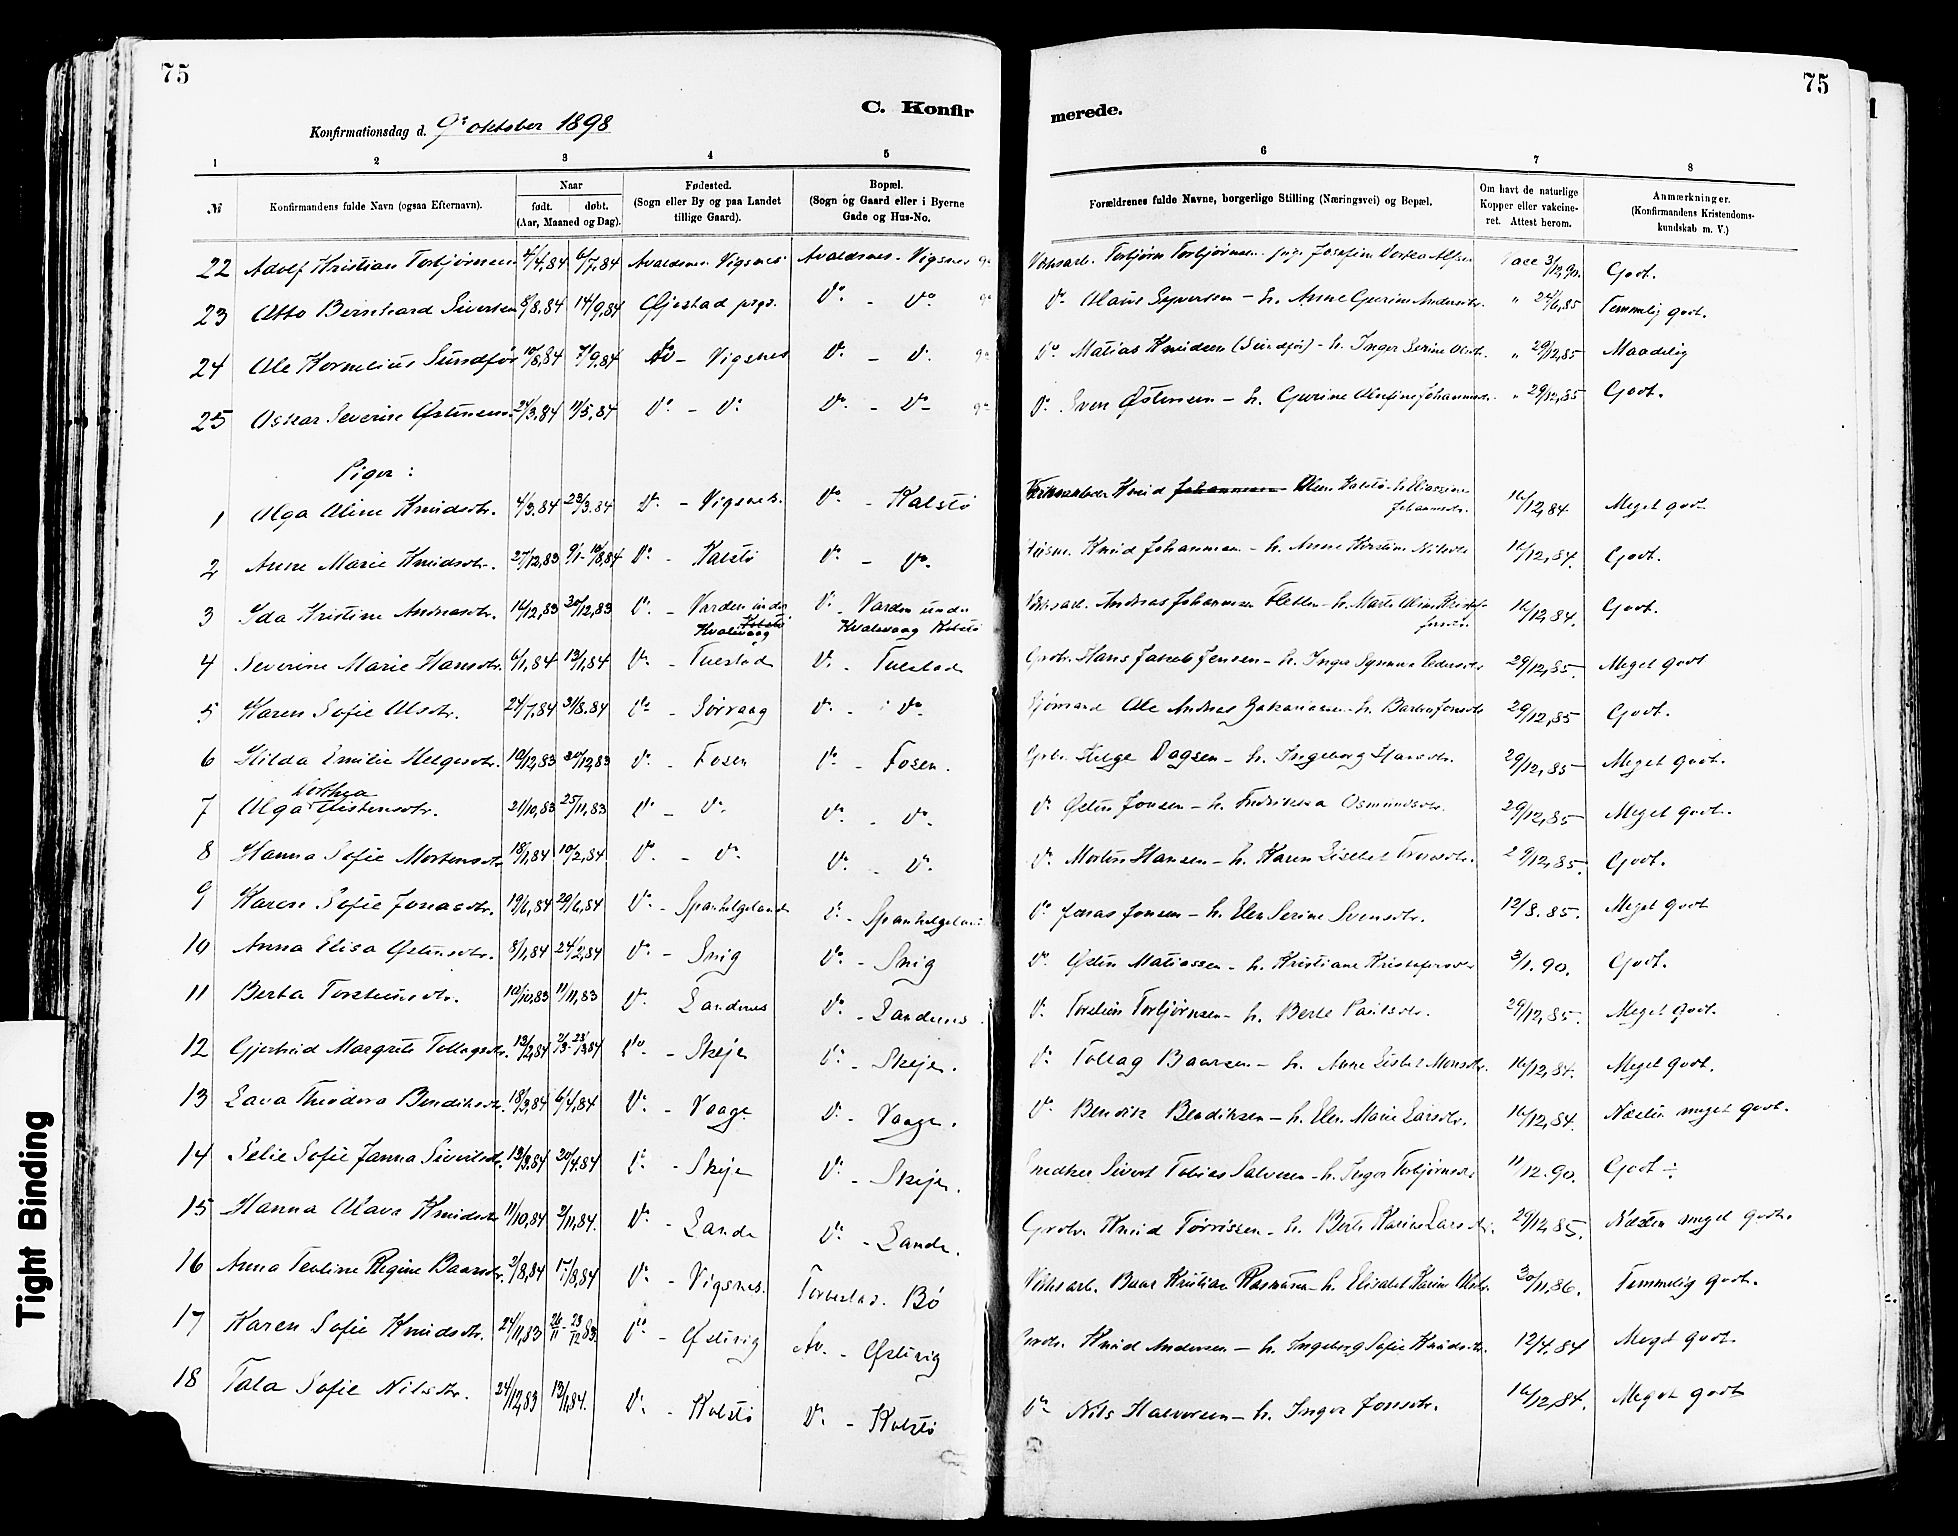 75
75
C. Konfir
merede.
Konfirmationsdag d. 9de oktober 1898
1 2 3 4 5 6 7 8
№
Konfirmandens fulde Navn (ogsaa Efternavn).
Naar
født. døbt.
(Aar, Maaned og Dag).
Fødested.
(Sogn eller By og paa Landet
tillige Gaard).
Bopæl.
(Sogn og Gaard eller i Byerne
Gade og Hus-No.
Forældrenes fulde Navne, borgerlige Stilling (Næringsvei) og Bopæl.
Om havt de naturlige
Kopper eller vakcine-
ret. Attest herom.
Anmærkninger.
(Konfirmandens Kristendoms-
kundskab m. V.)
22 Adolf Kristian Torbjørnsen 4/4,84 6/7,84 Avaldsnes Vigsnes Avaldsnes - Vigsnes Torbjørn Torbjørnsen 3/12,90. Godt.
23 Otto Bernhard Sivertsen 8/8,84 14/9,84 Gjestad prgj. Do - Do Do 24/6,85 Temmelig godt.
24 Ole Kornelius Sundfør 10/8,84 7/9,84 Av - Vigsnes Do - Do Do Matias Knudsen (Sundfør) - h. Inger Serine Olsdtr. " 29/12,85 Maadelig
25 Oskar Severin Østensen 24/3,84 11/5,84 Do - Do Do - Do Do Sven Østensen - h. Gurine Johannsdr. " 29/12,85 Godt.
Piger:
1 Olga Oline Knudsdtr. 4/3,84 23/3.84 Do - Vigsnes. Do - Kalstø Knud Johannessen Olsen Kalstø 16/12,84 Meget godt
Johannsdtr.
2 Anne Marie Knudsdtr. 27/12,83 9/1-10/8,84 Do - Kalstø Do - Do. Knud Johannesen - h. Anne Kirstine Nilsdtr 16/12,84. Godt.
3 Ida Kristine Andreasdtr. 16/12,83 30/12,83 Do - Varden under Do - Varden under Andreas Johannesen - h. Marte Oline 16/12,84. Godt.
Kolstø
Kvalavaag Kvalavaag Kolstø
4 Severine Marie Hansdtr. 6/1,84 13/1,84 Do - Tuestad Do - Tuestad Hans Jakob Jensen - h. Inger Pedersdtr 29/12,85. Meget godt
5 Karen Sofie Olsdtr. 24/7,84 31/8.84 Do - Sørvaag Do - Do. Ole Andreas Zakariassen - h. 29/12,85 Godt.
6 Hilda Emilie Helgesdtr. 10/12,83 30/12,83 Do - Fosen Do - Fosen. Helge Dagsen - h. Ingeborg Hansdtr. 29/12,85 Meget godt.
Dorthea
7 Olga Østensdtr. 21/10,83 25/11,83 Do - Do. Do - Do. Do Østen Jonsen - h. Fredrikka Osmundsdtr. 29/12,85 Meget godt.
8 Hanna Sofie Mortensdtr 18/1,84 10/2,84 Do - Do. Do - Do. Do Morten Hansen - h. Karen Lisebet 29/12,85. Godt.
9 Karen Sofie Jonasdtr. 19/6,84 29/6,84 Do - Spanhelgeland Do - Spanhelgeland Do Jonas Jonsen - h. Elen Serine Svensdtr. 12/8.85. Meget godt
10 Anna Elisa Østensdtr. 8/1,84 24/2,84 Do - Snig Do - Snig Do Østen Matiassen - h. Kristiane Kristofersdtr 3/1.90. Godt.
11 Berta Torsteinsdtr. 10/10,83 11/11,83 Do Landenes Do - Landenes Do Torstein Torbjørnsen - h. Berte Paulsdtr. 29/12,85. Meget godt.
12 Gjertrud Margrete Tollagsdtr. 13/2,84 2/3-23/3,84 Do - Skeje Do - Skeje. Do Tollag Baarsen - h. Anne Lisbet Monsdtr. 16/12,84. Meget godt.
13 Lava Theodora Bendiksdtr. 18/3,84 6/4,84 Do - Vaage Do - Vaage. Do Bendik Bendiksen - h. Elen Marie Larsdtr. 16/12,84. Næsten meget godt.
14 Selie Sofie Janna Sivertsdtr. 13/3,84 20/4.84 Do - Skeje Do - Skeje. Snedker Sivert Tobias Salvesen - h. Inger Torbjørnsdtr 11/12.90. Godt
15 Hanna Olava Knudsdtr 11/10,84 2/11,84. Do - Lande Do - Lande. Grdbr. Knud Tørrissen - h. Berte Karine Larsdtr. 29/12,85. Næsten meget godt.
16 Anna Teoline Regine Baarsdtr. 2/8,84 17/8,84 Do - Vigsnes. Torvestad. Bø Baar Kristian Rasmussen - h. Elisabet Karine Olsdtr. 30/11,86. Temmelig godt.
17 Karen Sofie Knudsdtr. 24/11,83 26/11 - 23/12 83. Do - Østevig Av. - Østevig Knud Andersen - h. Ingeborg Sofie Knudsdtr. 12/4.84 Meget godt.
18 Tala Sofie Nilsdtr. 24/12,83 13/1,84. Do - Kolstø Do - Kolstø Do Nils Halvorsen - h. Inger Jonsdtr. 16/12,84. Meget godt
Tight Binding